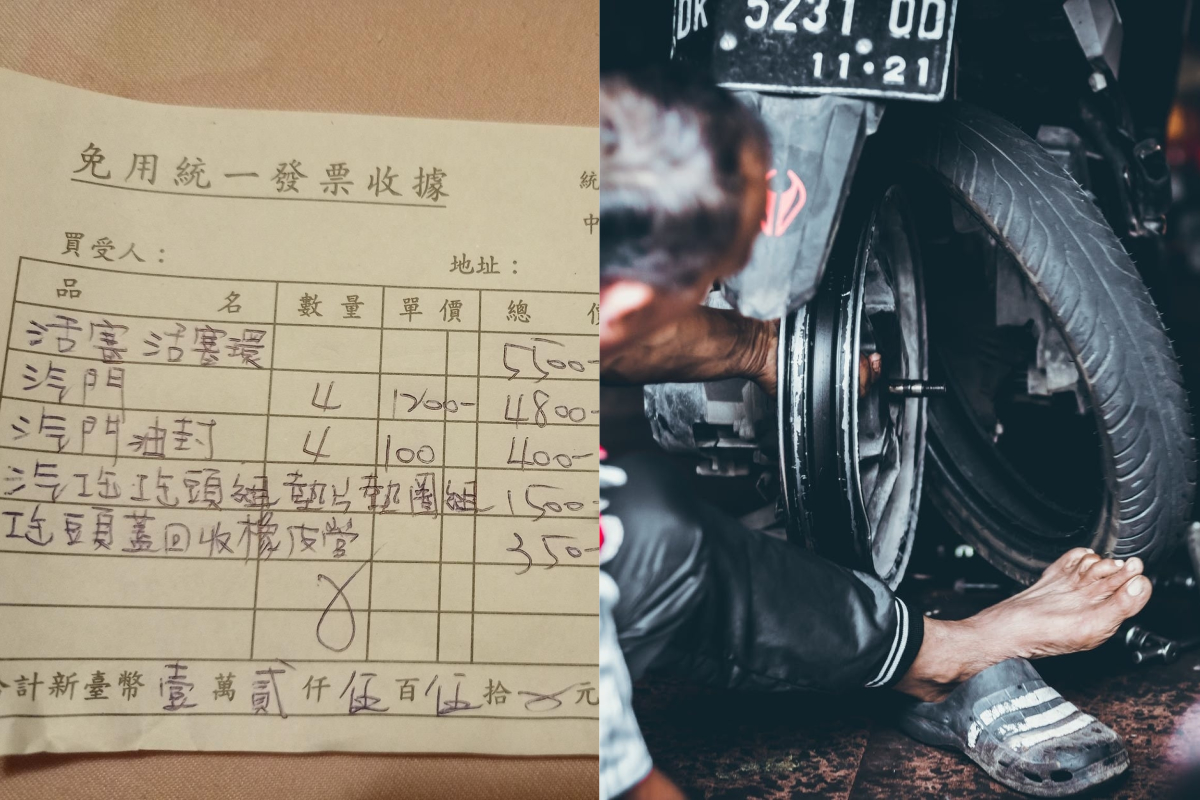 免用統一發票收據
統
中
買受人：
地址：
品 名 數量 單價 總
活塞 活塞環 5500-
汽門 4 1200- 4800-
汽門油封 4 100 400-
汽缸缸頭組墊片墊圈組 1500-
缸頭蓋回收橡皮管 350-
計新臺幣壹萬貳仟伍百伍拾元
DK 5231 QD
11·21